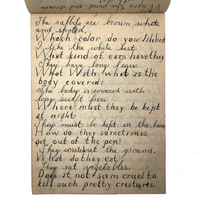 The rabbits are brown, white
and spotted.
Which color do you like best
I like the white best.
What kind of ears have they
They have long
What With what is the
body covered
The body is covered with
long soft fur.
Where must they be kept
at night
They must be kept in the
How do they sometimes
get out of the pen?
They scratch the ground.
What do they eat.
They eat vegetables.
Does it not seem cruel to
kill such pretty creatures